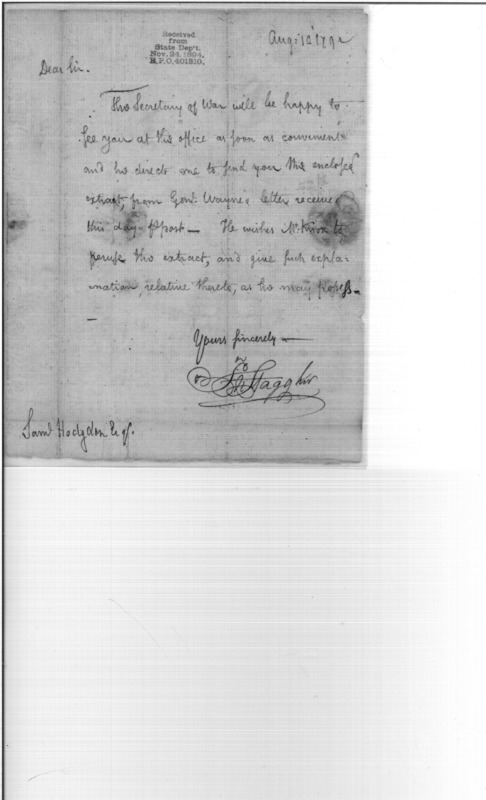 Received
from
State Dep't.
Nov. 24. 1894.
R.P.O. 401810.
Augt 12 1792
Dear Sir.
The Secretary of War will be happy to
see you at the office as soon as convenient
and he directs me to send you the enclosed
extract, from Genl. Wayne's letter received
this day p post — He wishes Mr. Knox to
peruse the extract, and give such expla-
nation, relative thereto, as he may possess —
—
Yours sincerely —
Jno Stagg Jnr
Saml Hodgdon Esqr.